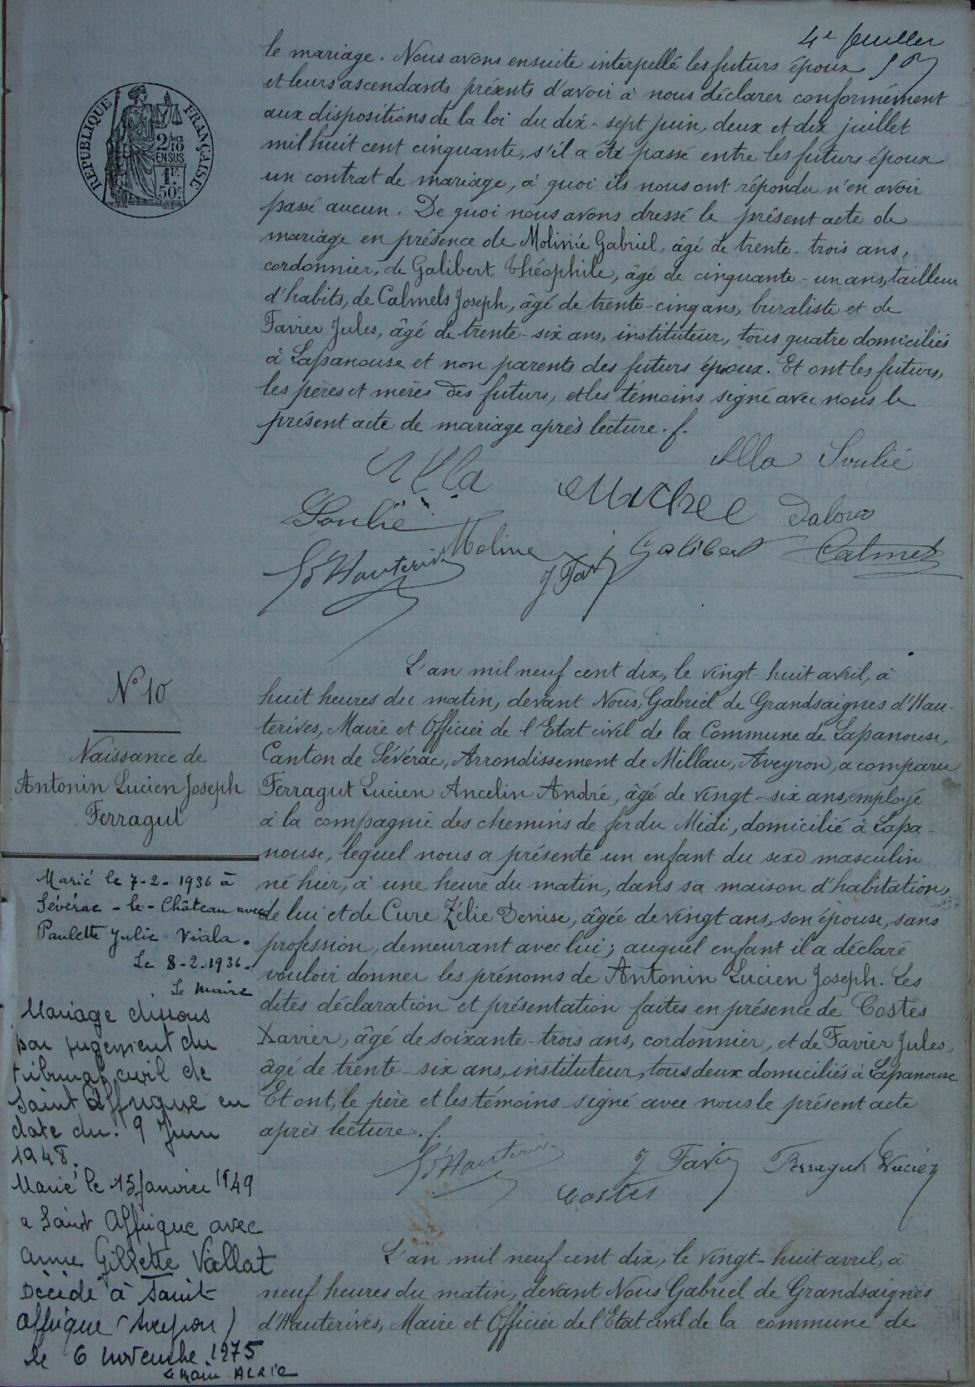 4e feuillet
RÉPUBLIQUE FRANÇAISE
2/10
EN SUS
1F
50c
le mariage. Nous avons ensuite interpellé les futurs époux
et leurs ascendants présents d'avoir à nous déclarer conformément
aux dispositions de la loi du dix-sept juin, deux et dix juillet
mil huit cent cinquante, s'il a été passé entre les futurs époux
un contrat de mariage, à quoi ils nous ont répondu n'en avoir
passé aucun. De quoi nous avons dressé le présent acte de
mariage en présence de Molinié Gabriel, âgé de trente-trois ans,
cordonnier, de Galibert Théophile, âgé de cinquante-un ans, tailleur
d'habits, de Calmels Joseph, âgé de trente-cinq ans, buraliste et de
Favier Jules, âgé de trente-six ans, instituteur, tous quatre domiciliés
à Lapanouse et non parents des futurs époux. Et ont les futurs,
les pères et mères des futurs, et les témoins signé avec nous le
présent acte de mariage après lecture.
Alla Soulié
Alla Michel
Soulié
Moline Galibert Calmels
G d'Hauterives J Favier
N° 10
Naissance de
Antonin Lucien Joseph
Ferragut
L'an mil neuf cent dix, le vingt huit avril, à
huit heures du matin, devant Nous, Gabriel de Grandsaignes d'Hau-
terives, Maire et Officier de l'Etat civil de la Commune de Lapanouse,
Canton de Sévérac, Arrondissement de Millau, Aveyron, a comparu
Ferragut Lucien Ancelin André, âgé de vingt-six ans, employé
à la compagnie des chemins de fer du Midi, domicilié à Lapa-
nouse, lequel nous a présenté un enfant du sexe masculin
né hier, à une heure du matin, dans sa maison d'habitation,
de lui et de Cure Zélie Denise, âgée de vingt ans, son épouse, sans
profession, demeurant avec lui; auquel enfant il a déclaré
vouloir donner les prénoms de Antonin Lucien Joseph. Les
dites déclaration et présentation faites en présence de Costes
Xavier, âgé de soixante-trois ans, cordonnier, et de Favier Jules,
âgé de trente-six ans, instituteur, tous deux domiciliés à Lapanouse
Et ont, le père et les témoins signé avec nous le présent acte
après lecture.
G d'Hauterives J Favier Ferragut Lucien
Costes
Marié le 7-2-1936 à
Sévérac-le-Château avec
Paulette Julie Viala.
Le 8-2-1936.
Le Maire
Mariage dissous
par jugement du
tribunal civil de
Saint Affrique en
date du 9 Juin
1948.
Marié le 15 janvier 1949
à Saint Affrique avec
Anne Gillette Vallat
Décédé à Saint
Affrique (Aveyron)
le 6 novembre 1975
Le Maire ALRIC
L'an mil neuf cent dix, le vingt-huit avril, à
neuf heures du matin, devant Nous Gabriel de Grandsaignes
d'Hauterives, Maire et Officier de l'Etat civil de la commune de